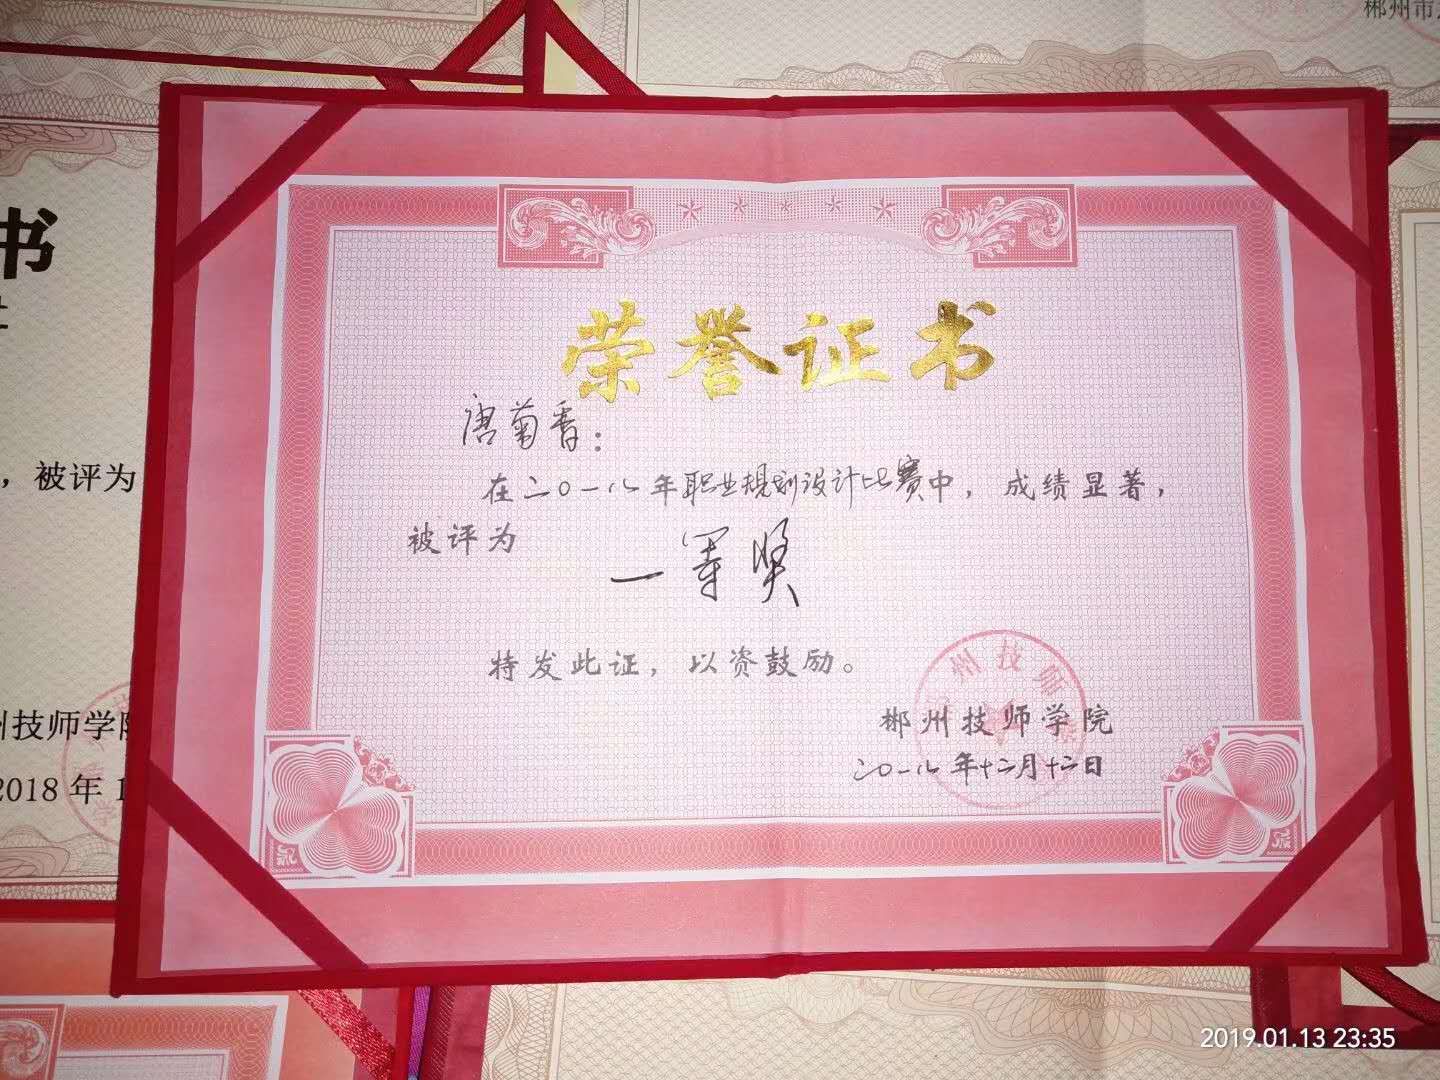 郴州市
书
荣誉证书
唐菊香：
在二〇一八年职业规划设计比赛中，成绩显著，
，被评为
被评为
一等奖
特发此证，以资鼓励。
州技师
郴州技师学院
二〇一八年十二月十二日
州技师学院
2018年1
2019.01.13 23:35